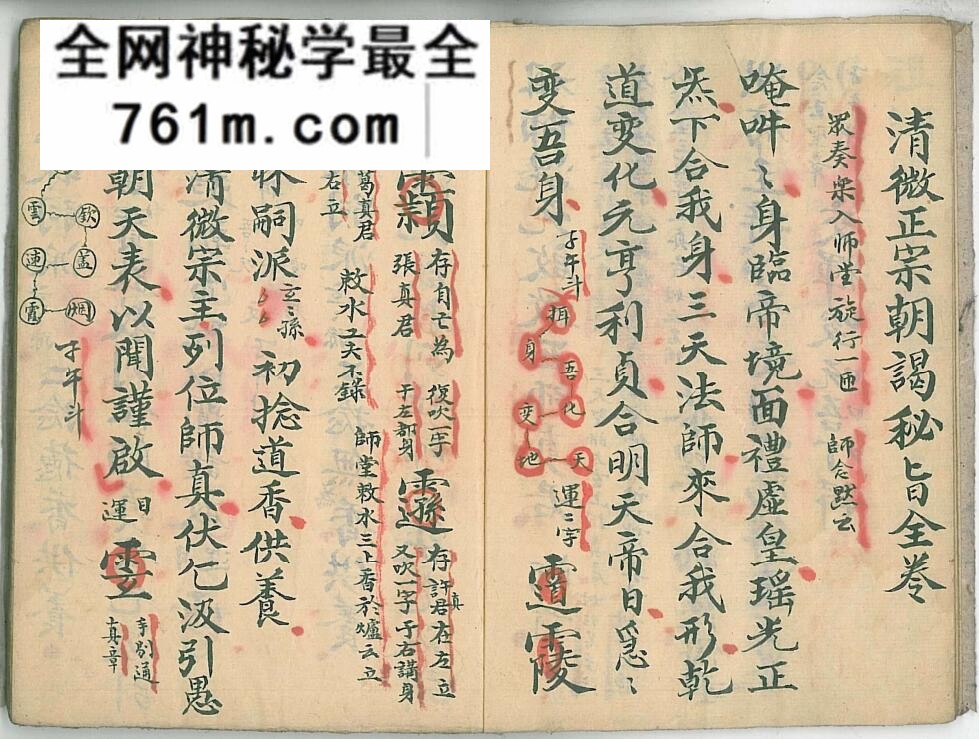 全网神秘学最全
761m.com
清微正宗朝謁秘旨全卷
眾奏樂入师堂旋行一匝 師念默云
唵吽〻身臨帝境面禮虛皇瑤光正
炁下合我身三天法師來合我形乾
道变化元亨利貞合明天帝日
变吾身 子午斗
身 吾 化
变 地 天
運二字
存自亡為 復吹一字 存許真君在左立
張真君 于左部身 又吹一字于右講身
葛真君
右立
敕水 师堂敕水三上香於爐云立
嗣派 立〻孫 初捻道香供養
清微宗主列位師真伏乞汲引愚
朝天表以聞謹啟 日運
真章
雲 欽
連 蓋
霞 烟
子午斗